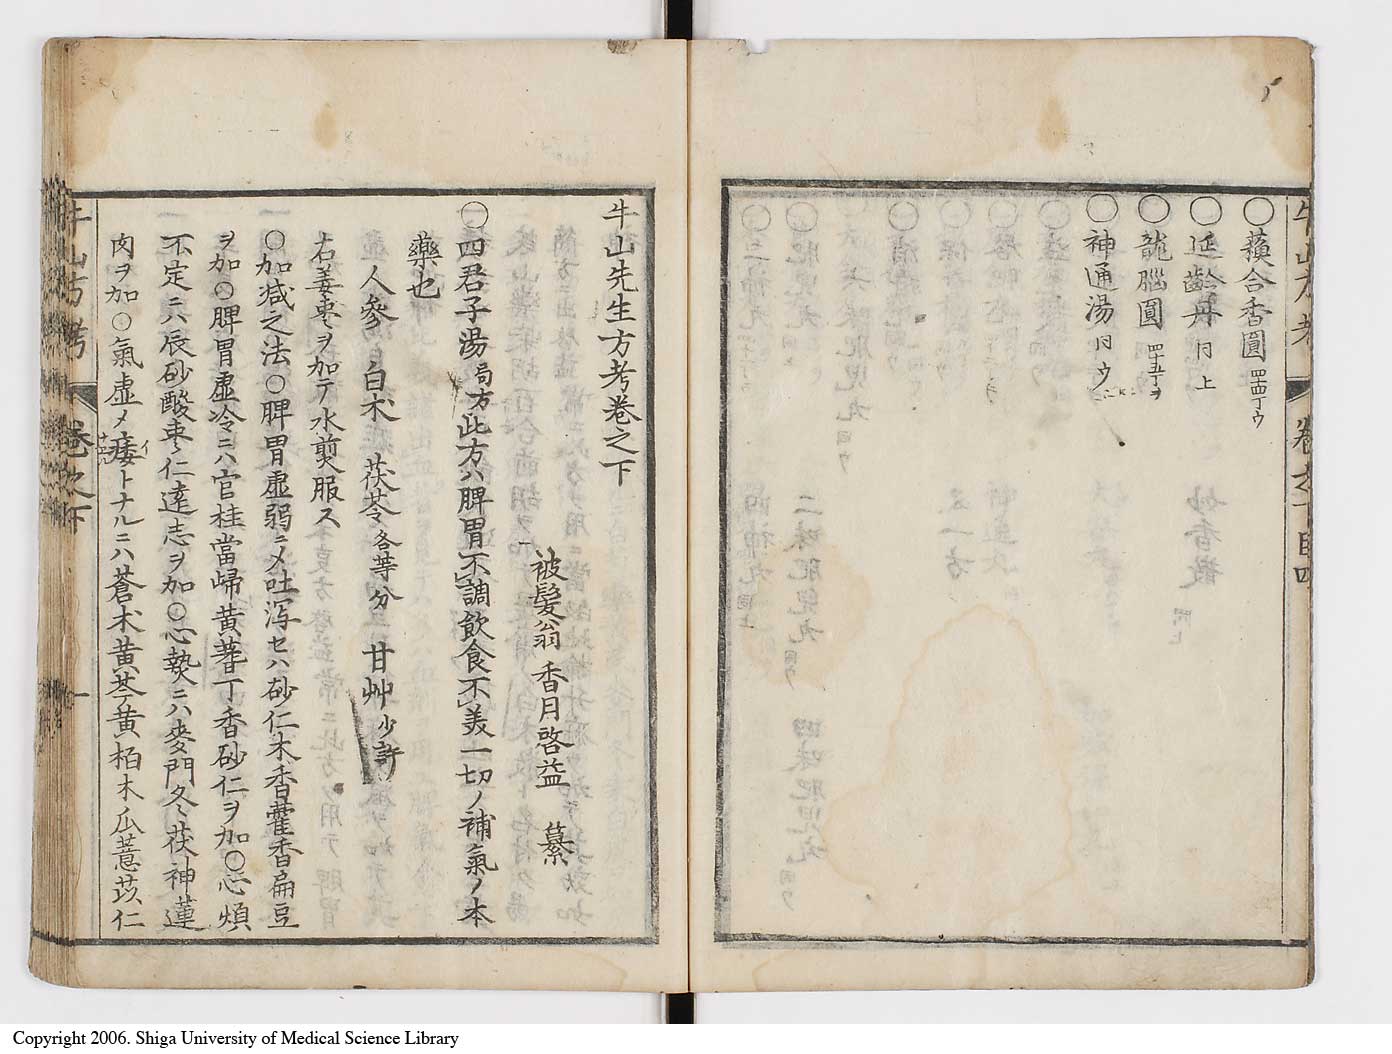 〇蘓合香圓 四十四丁ウ
〇延齡丹 同上
〇龍腦圓 四十五丁ヲ
〇神通湯 同ウ
牛山先生方考卷之下
被髮翁 香月啓益 纂
〇四君子湯 局方 此方ハ脾胃不調飲食不美一切ノ補氣ノ本
藥也
人參 白朮 茯苓各等分 甘艸少許
右姜棗ヲ加テ水煎服ス
〇加减之法〇脾胃虚弱ニメ吐泻セハ砂仁木香藿香扁豆
ヲ加〇脾胃虚冷ニハ官桂當歸黄蓍丁香砂仁ヲ加〇心煩
不定ニハ辰砂酸棗仁遠志ヲ加〇心熱ニハ麥門冬茯神蓮
肉ヲ加〇氣虚メ痿トナルニハ蒼朮黄芩黄栢木瓜薏苡仁
牛山方考 卷之下 一
Copyright 2006. Shiga University of Medical Science Library